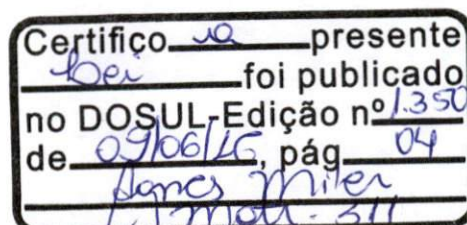 Certifico a presente
Lei foi publicado
no DOSUL-Edição nº 1.350
de 09/06/26, pág. 04
Agnes Miler
Mat. 311